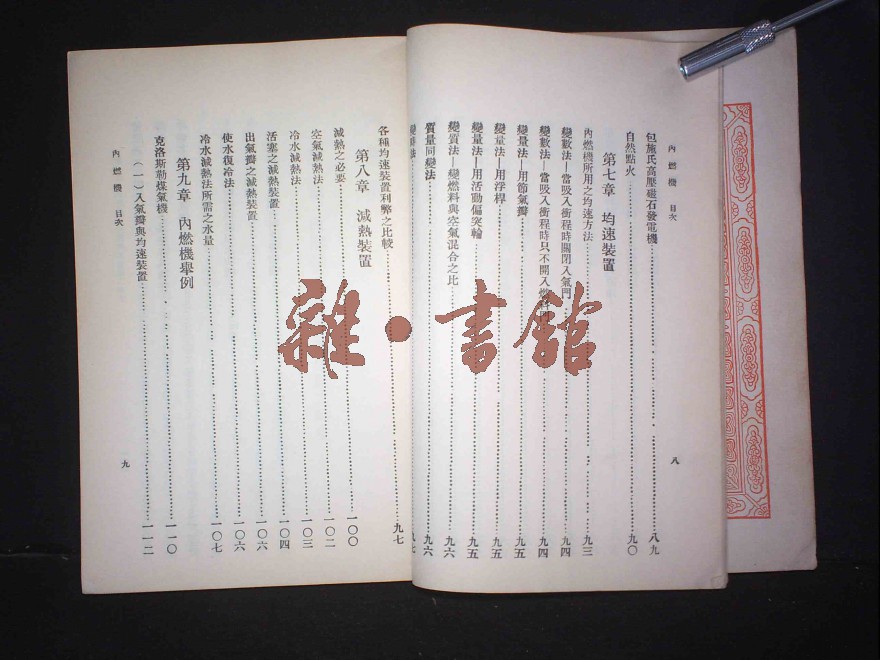 內燃機 目次
包施氏高壓磁石發電機 八九
自然點火 九〇
第七章 均速裝置
內燃機所用之均速方法 九三
變數法—當吸入衝程時關閉入氣門 九四
變數法—當吸入衝程時只不開入燃 九四
變量法—用節氣瓣 九五
變量法—用浮桿 九五
變量法—用活動偏突輪 九五
變質法—變燃料與空氣混合之比 九六
質量同變法 九六
法 九七
八
各種均速裝置利弊之比較 九七
第八章 減熱裝置
減熱之必要 一〇〇
空氣減熱法 一〇二
冷水減熱法 一〇三
活塞之減熱裝置 一〇四
出氣瓣之減熱裝置 一〇六
使水復冷法 一〇六
冷水減熱法所需之水量 一〇七
第九章 內燃機舉例
克洛斯勒煤氣機 一一〇
(一)入氣瓣與均速裝置 一一二
內燃機 目次
九
雜·書館